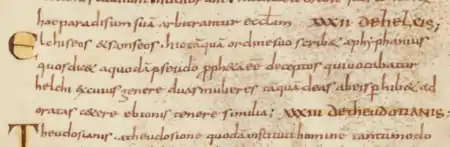 hoc paradisum suā arbitrantur ecclam XXXII DE HELCIS;
Elchiseos & sanseos. hic tāquā ordine suo scribit aephiphanius
quos dicit aquodā pseudo pphaeta eē deceptos qui vocabatur
helchi & cuius genere duas mulieres tāquā deas abeis phibet ad
oratas cetere ebionis tenore similia; XXXIII DE THEUDOTIANIS
Theudosianis. a theudosione quodā instituti homine tantūmodo